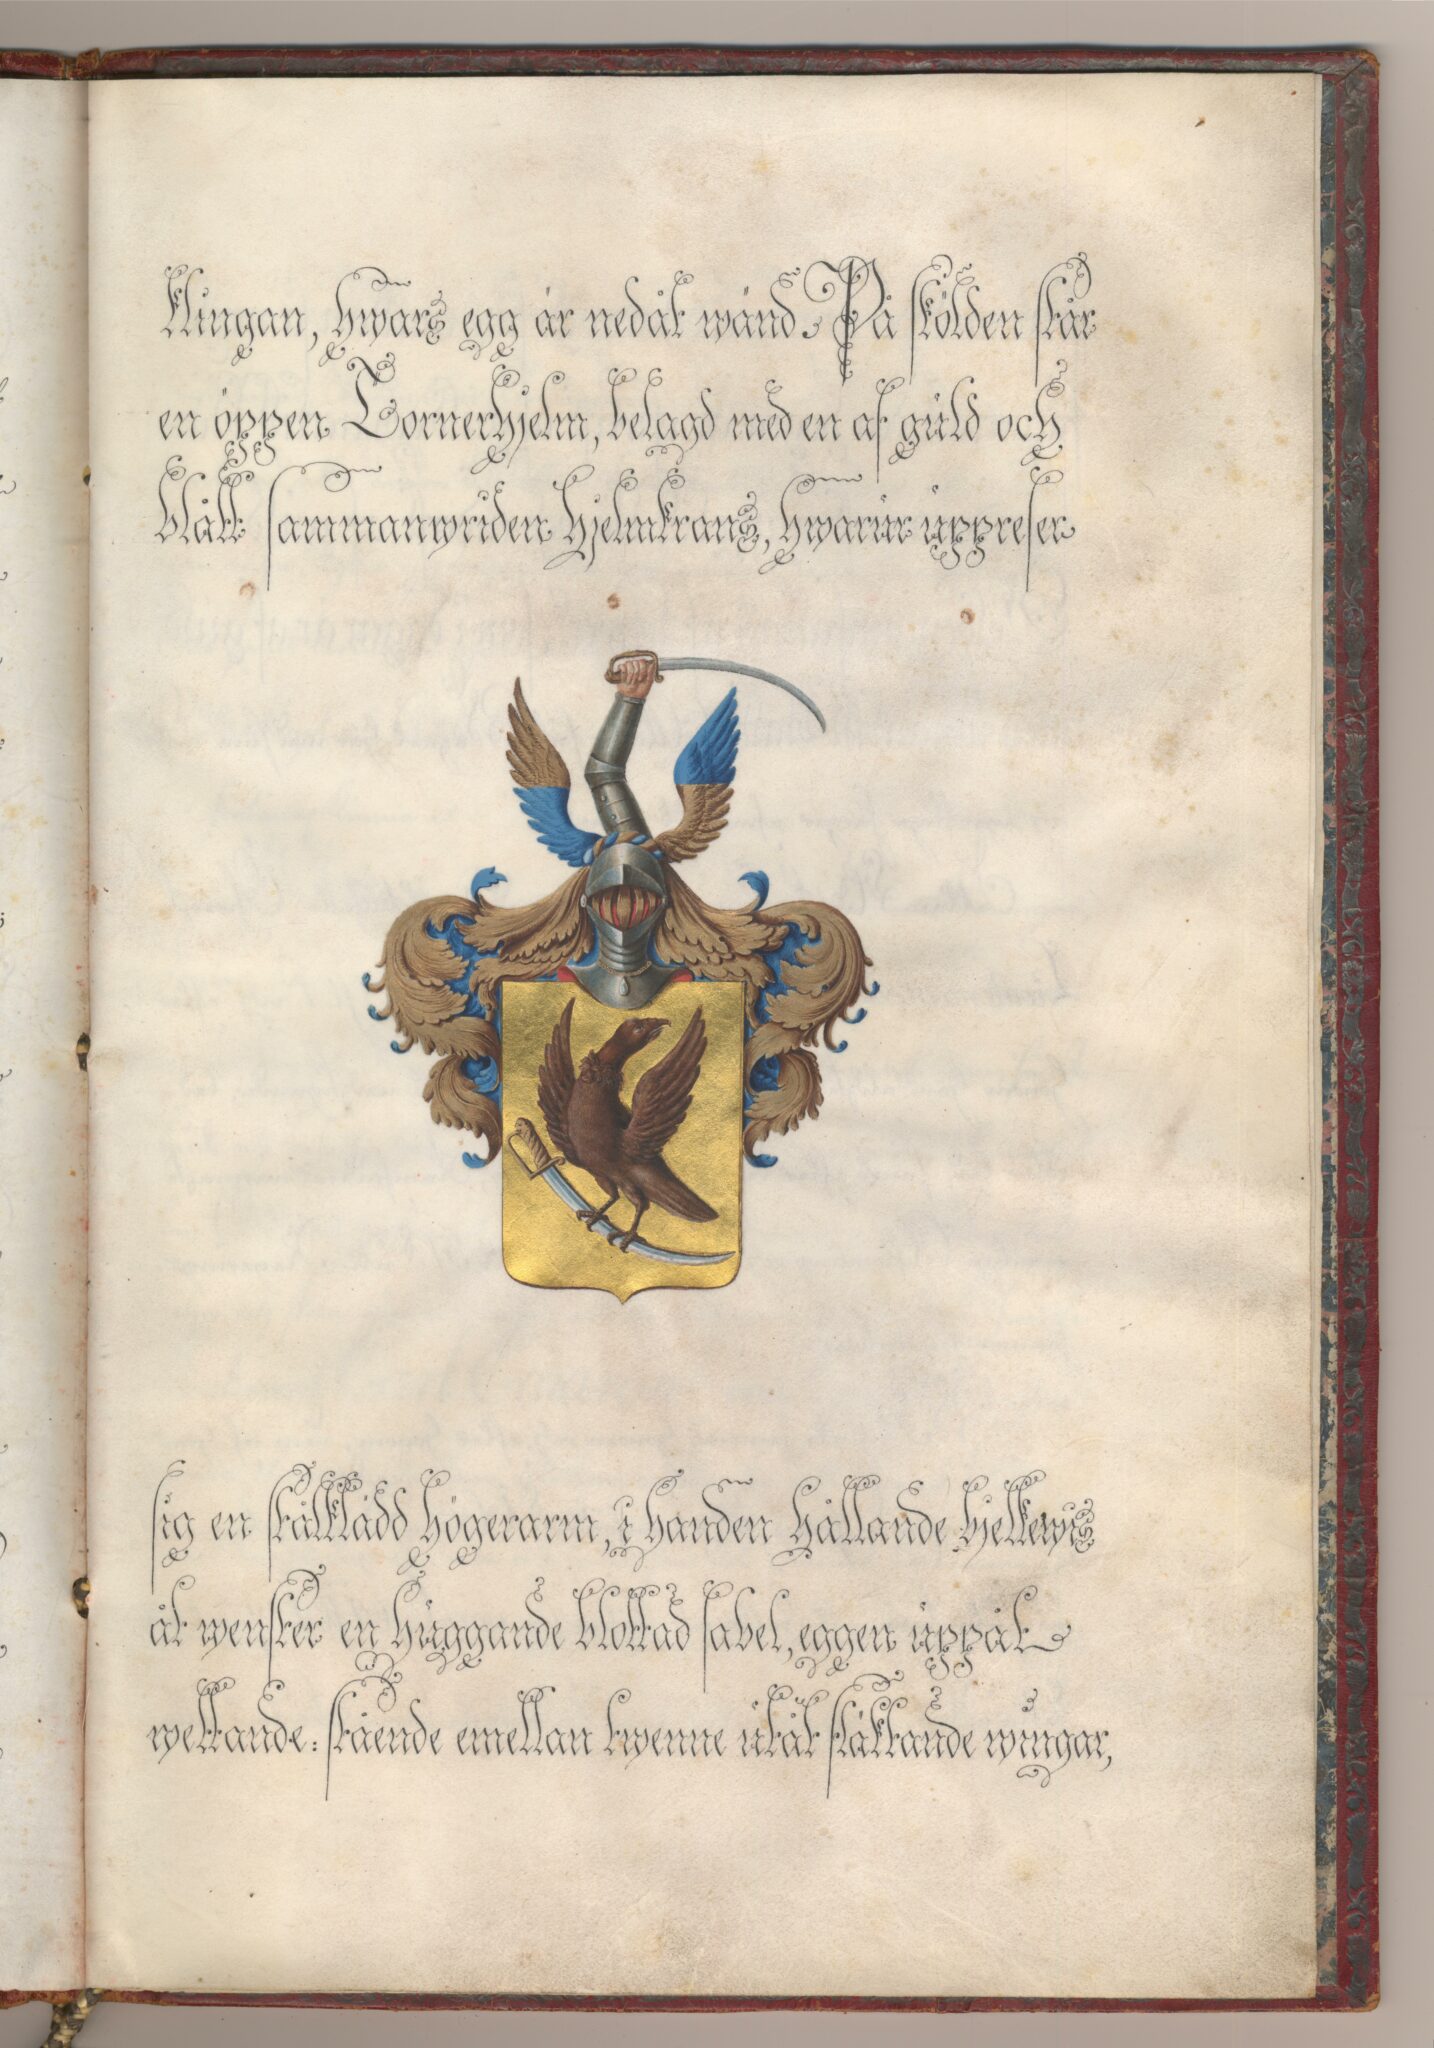 klingan, hwars egg är nedåt wänd. På skölden står
en öppen Tornerhjelm, belagd med en af guld och
blått sammanwriden hjelmkrans, hwarur uppreser
sig en stålklädd högerarm, i handen hållande bjelkewis
åt wenster en huggande blottad sabel, eggen uppåt
wettande: stående emellan twenne utåt sträckande wingar,